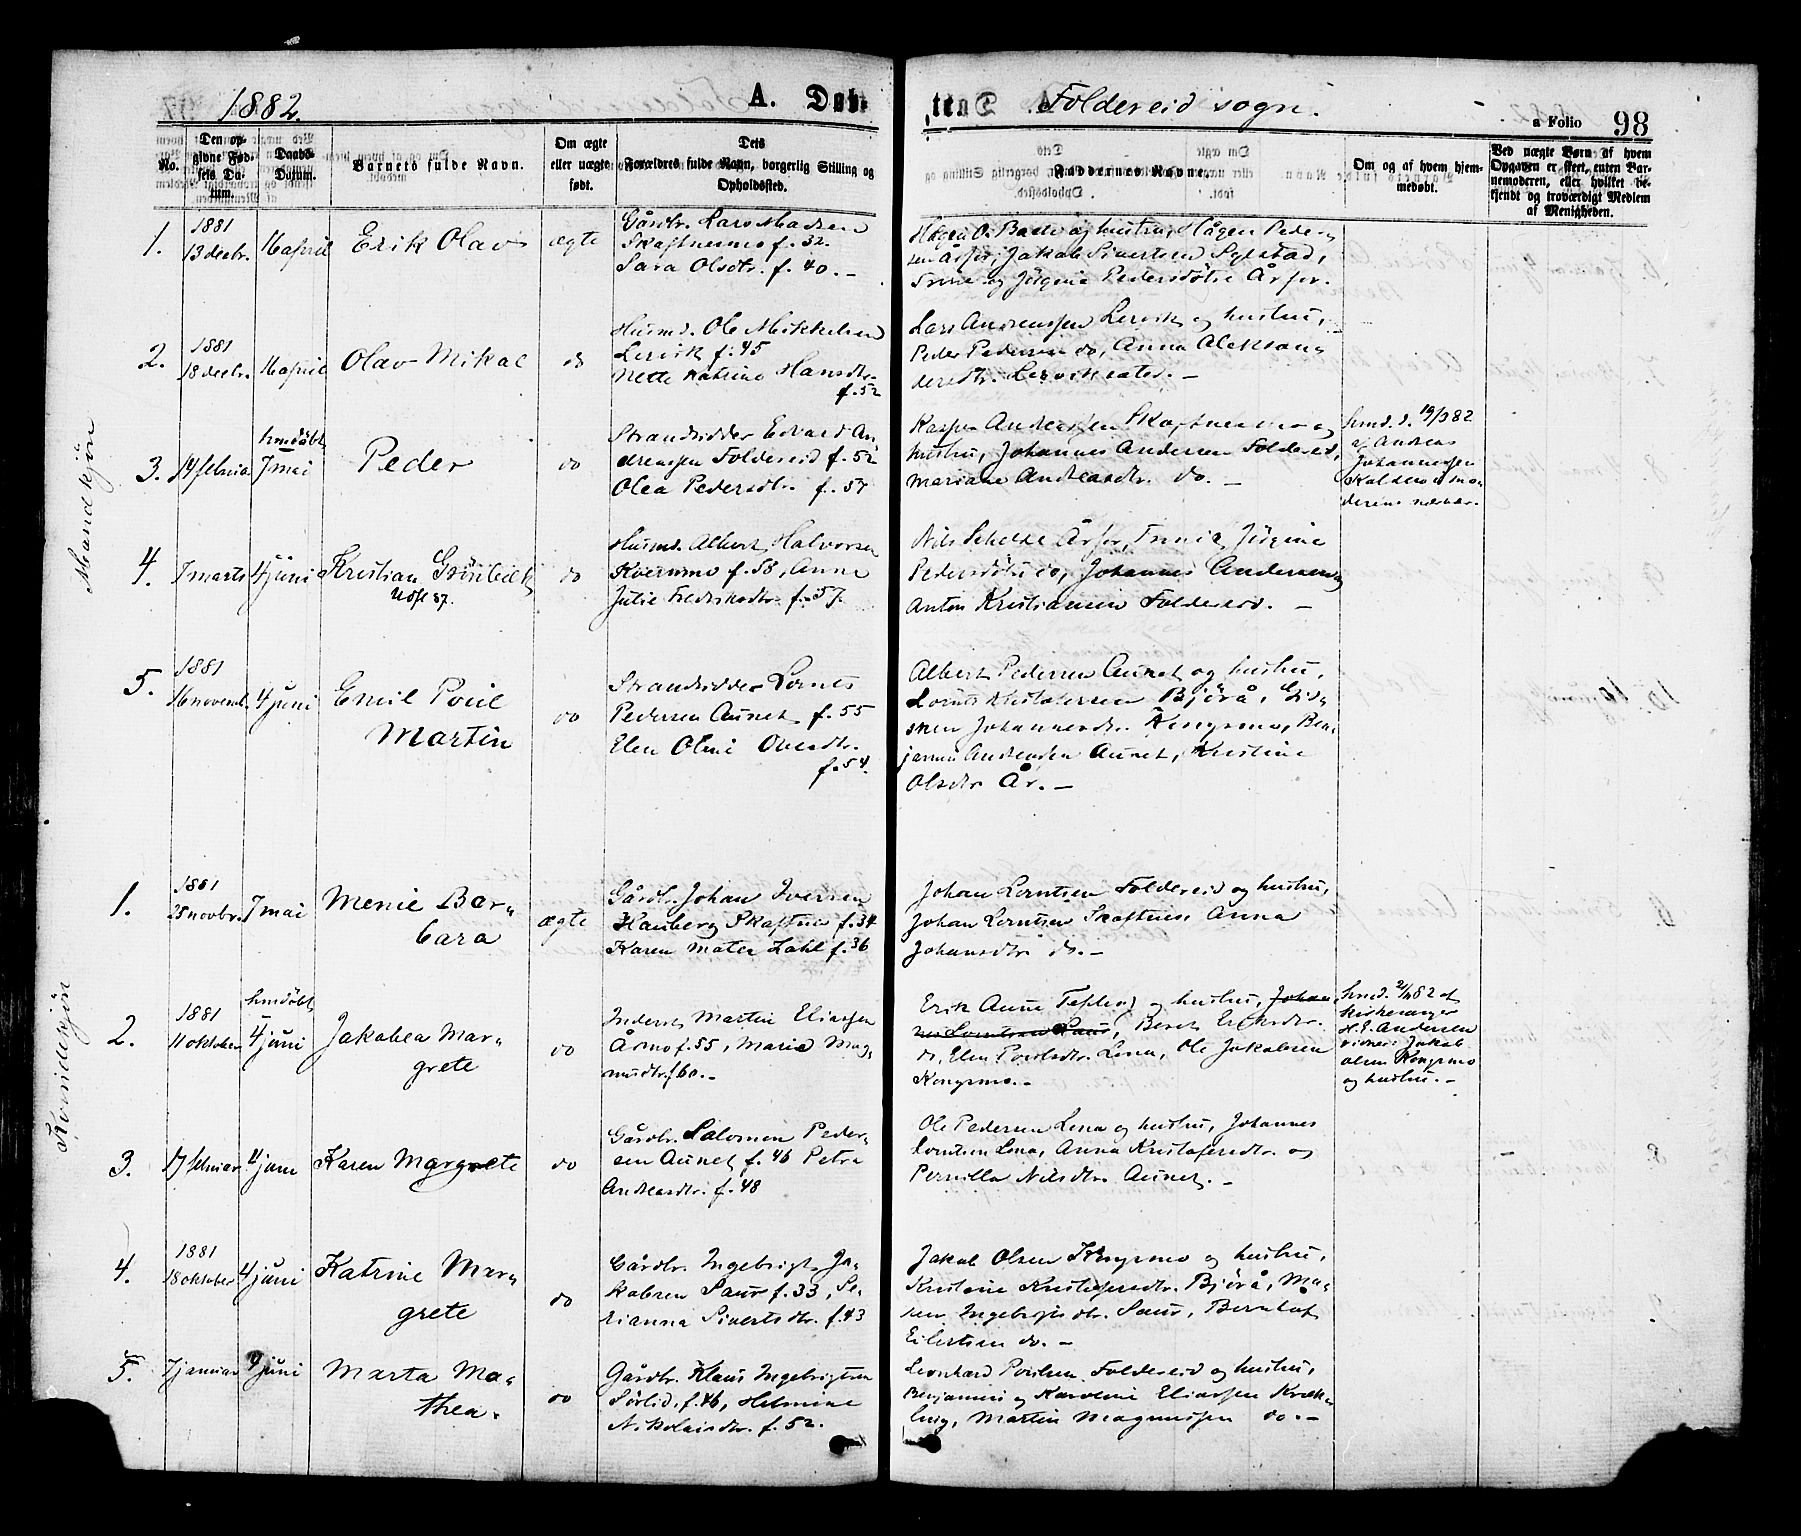 1882.
A. Døb-
Foldereid sogn.
a Folio 98
No.
Den opgivne Fødsels Datum.
Daabs-Datum.
Barnets fulde Navn.
Om ægte eller uægte født.
Dets Forældres fulde Navn, borgerlig Stilling og Opholdssted.
Faddernes Navne.
Om og af hvem hjemmedøbt.
Ved uægte Børn af hvem Opgaven er skeet, enten Barnemoderen, eller hvilket bekjendt og troværdigt Medlem af Menigheden.
Mandkjøn
1.
1881
13 decbr.
16 april
Erik Olav
ægte
Gårdbr. Lars Madsen
Skaftnesmo f. 32.
Sara Olsdtr. f. 40. –
Hågen O. og hustru, Hågen Peder-
sen Årfor, Jakob Sivertsen
Trine og Jørgine Pedersdøtre Årfor.
2.
1881
18 decbr.
16 april
Olav Mikal
do
Husmd. Ole Mikkelsen
Lervik f. 45
Nette Katrine Hansdtr.
f. 52
Lars Andreassen Lervik og hustru,
Peder Pedersen do, Anna Aleksan-
dersdtr. –
3.
14 februa
hmdøbt
7 mai
Peder
do
Strandsidder Edvard An-
dreassen Foldereid f. 52
Olea Pedersdtr. f. 57
Kasper Andreassen Skaftnesmo og
hustru, Johannes Andersen Foldereid,
Mariane Andreasdtr. do. –
hmd. d. 19/3 82
af Andreas
Johannessen
mo-
derens nærvær.
4.
7 marts
4 juni
Kristian Grønbeck
87.
do
Husmd. Albert Halvorsen
Kvernmo f. 58, Anne
Julie Fredriksdtr. f. 57.
Nils Årfor, Trine og Jørgine
Pedersdøtre do, Johannes Andersen og
Anton Kristiansen Foldereid. –
5.
1881
16 novemb.
4 juni
Emil Poul
Martin
do
Strandsidder Lornts
Pedersen Aunet f. 55
Elen Oline Ovesdtr.
f. 54.
Albert Pedersen Aunet og hustru,
Lornts Kristofersen Bjørå,
Johannesdtr. Kongsmo, Ben-
jamin Andreassen Aunet, Kristine
Olsdtr År. –
Kvindekjøn
1.
1881
25 novbr.
7 mai
Menie Bar-
bara
ægte
Gårdbr. Johan Iversen
Hauberg Skaftnes f. 34
Karen Mater Lahl f. 36
Johan Lorntsen Foldereid og hustru,
Johan Lorntsen Skaftnes Anna
Johansdtr. do. –
2.
1881
11 oktober
hmdøbt
4 juni
Jakobea Mar-
grete
do
Inderst Martin Eliassen
Årmo f. 55, Marie Mag-
nusdtr. f 60. –
Erik Aune og hustru, Johan-
nes Lorntsen, Beret Eriksdtr.
do, Elen Poulsdtr. Lona, Ole Jakobsen
Kongsmo. –
hmd. 82 af
kirkesanger
H. E. Andersen
vidner: Jakob
Olsen Kongsmo
og hustru. –
3.
17 februar
4 juni
Karen Margrete
do
Gårdbr. Salomon Peder-
sen Aunet f. 46 Petra
Andreasdtr. f. 48
Ole Pedersen Lona og hustru, Johannes
Lorntsen Lona, Anna Kristofersdtr. og
Pernilla Nilsdtr. Aunet. –
4.
1881
18 oktober
4 juni
Katrine Mar-
grete
do
Gårdbr. Ingebrigt Ja-
kobsen Saur f. 33, Se-
rianna Sivertsdtr. f. 43
Jakob Olsen Kongsmo og hustru,
Kristine Kristofersdtr. Bjørå, Ma-
ren Ingebrigtsdtr. Saur, Berntof
Eilertsen do. –
5.
7 januar
4 juni
Marta Ma-
thea.
do
Gårdbr. Klaus Ingebrigtsen
Sørlid, f. 46, Helmine
Nikolaisdtr. f. 52.
Leonhard Poulsen Foldereid og hustru,
Benjamin og Karoline Eliassen Kvæk-
ling, Martin Magnussen do. –